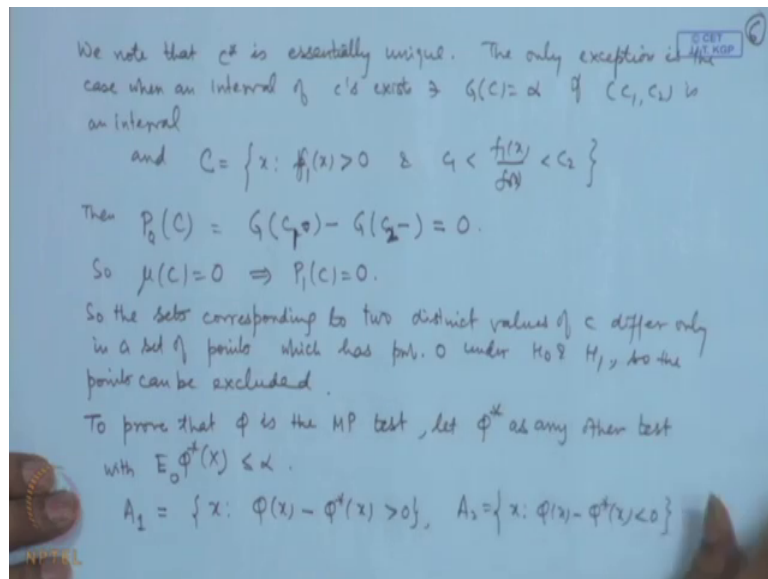 © CET
I.I.T. KGP
6
We note that c* is essentially unique. The only exception is the
case when an interval of c's exist ∋ G(c) = α if (c₁, c₂) is
an interval
and C = { x : f₁(x) > 0 & c₁ < f₁(x)/f₀(x) < c₂ }
Then P₀(C) = G(c₁) - G(c₂-) = 0.
So μ(C) = 0 ⇒ P₁(C) = 0.
So the sets corresponding to two distinct values of c differ only
in a set of points which has prob. 0 under H₀ & H₁, so the
points can be excluded.
To prove that φ is the MP test, let φ* as any other test
with E₀ φ*(X) ≤ α.
A₁ = { x : φ(x) - φ*(x) > 0 }, A₂ = { x : φ(x) - φ*(x) < 0 }
NPTEL